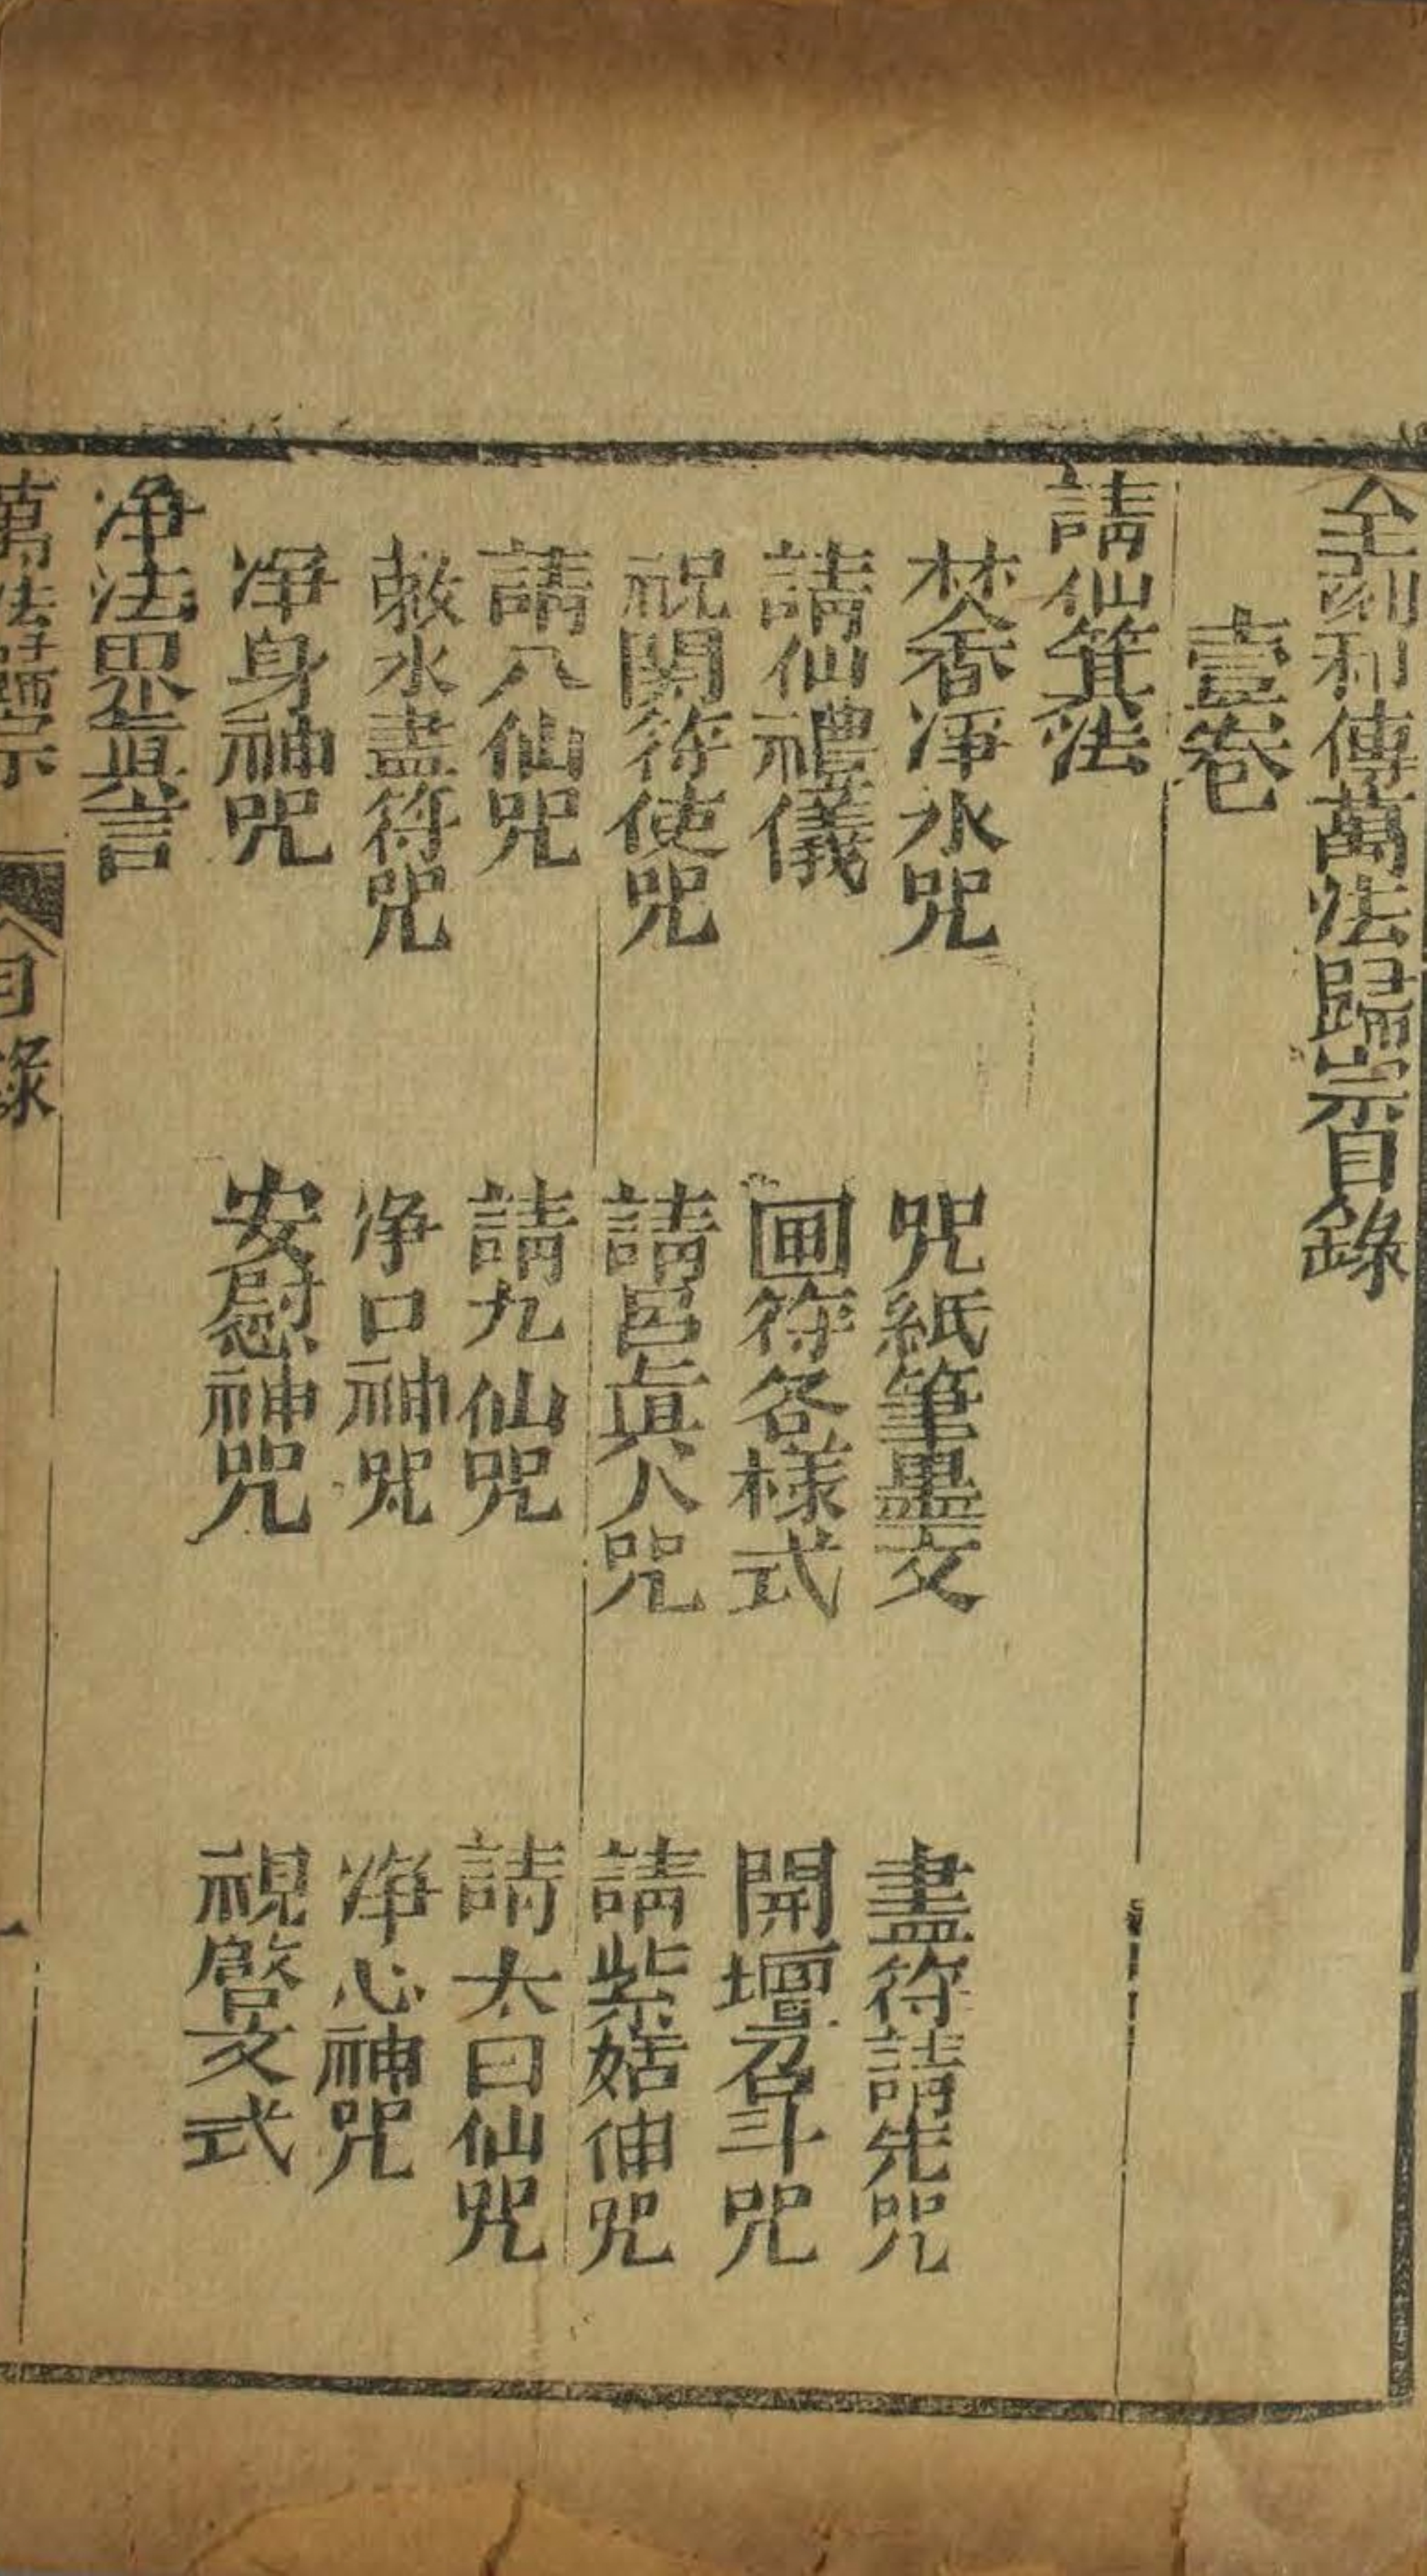 全刻秘傳萬法歸宗目錄
壹卷
請仙箕法
焚香淨水咒　咒紙筆墨文　畫符請先咒
請仙禮儀　圃符各樣式　開壇召斗咒
祝関符使咒　請吕眞人咒　請紫姑伸咒
請八仙咒　請九仙咒　請太曰仙咒
敕水畫符咒　净口神咒　净心神咒
净身神咒　安慰神咒　祝啓文式
净法界眞言
萬法歸宗　目錄　一